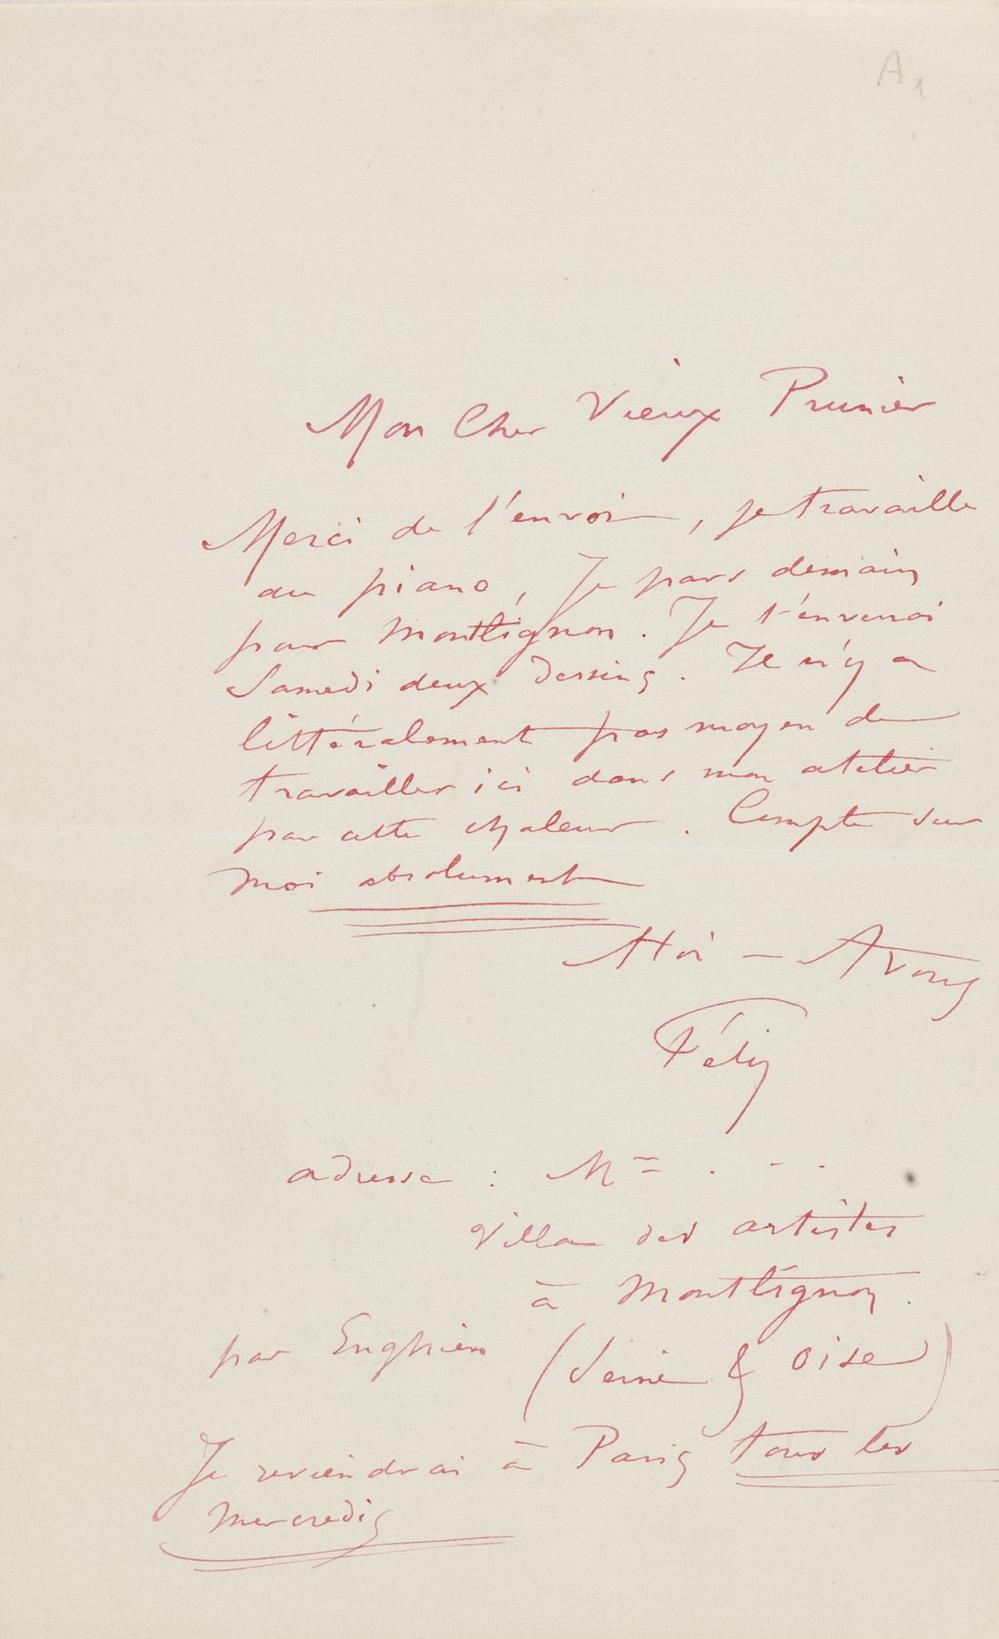 A1
Mon Cher Vieux Prunier
Merci de l'envoi, je travaille
au piano, Je pars demain
pour Montlignon. Je t'enverrai
Samedi deux dessins. Il n'y a
littéralement pas moyen de
travailler ici dans mon atelier
par cette chaleur. Compte sur
moi absolument
Avous
Félix
adresse : Mme . - .
Villa des artistes
à Montlignon.
par Enghien (Seine & Oise)
Je reviendrai à Paris tous les
mercredis